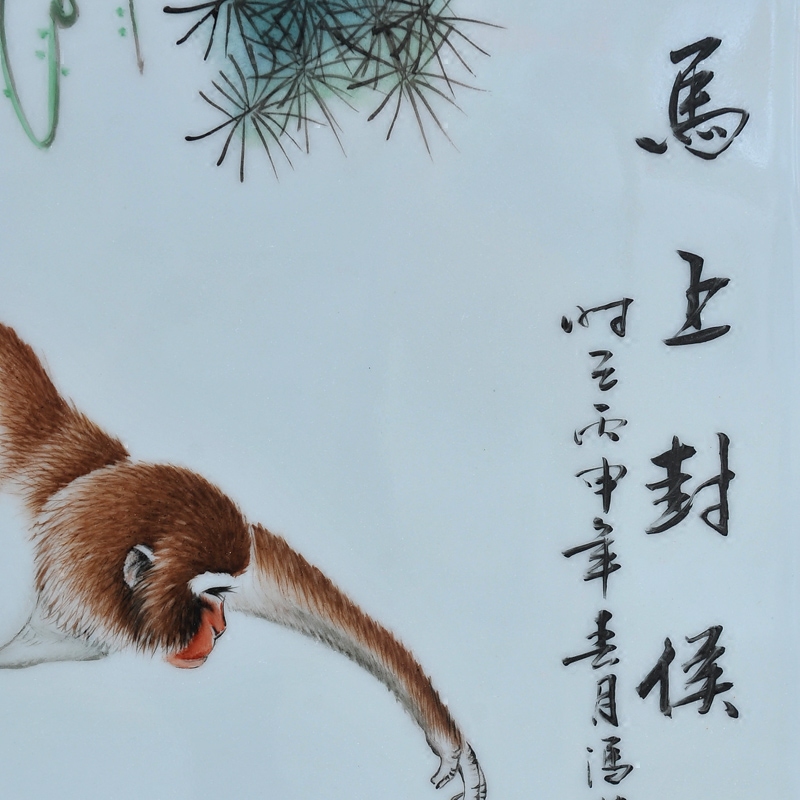 馬上封侯
时在丙申年春月馮